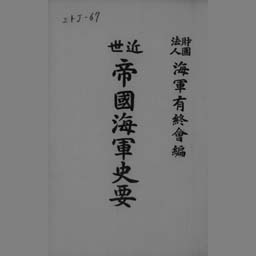 21J-67
財團法人 海軍有終會編
近世 帝國海軍史要